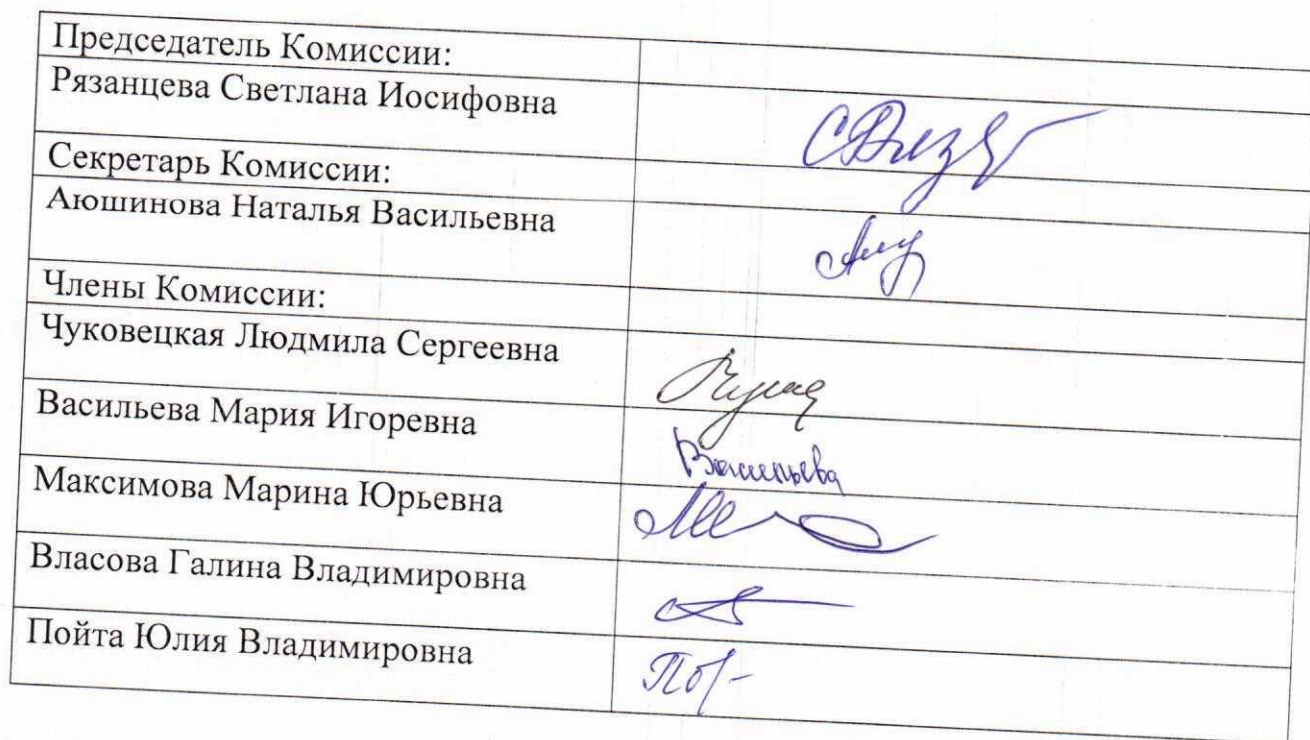 Председатель Комиссии:
Рязанцева Светлана Иосифовна
Секретарь Комиссии:
Аюшинова Наталья Васильевна
Члены Комиссии:
Чуковецкая Людмила Сергеевна
Васильева Мария Игоревна
Васильева
Максимова Марина Юрьевна
Власова Галина Владимировна
Пойта Юлия Владимировна